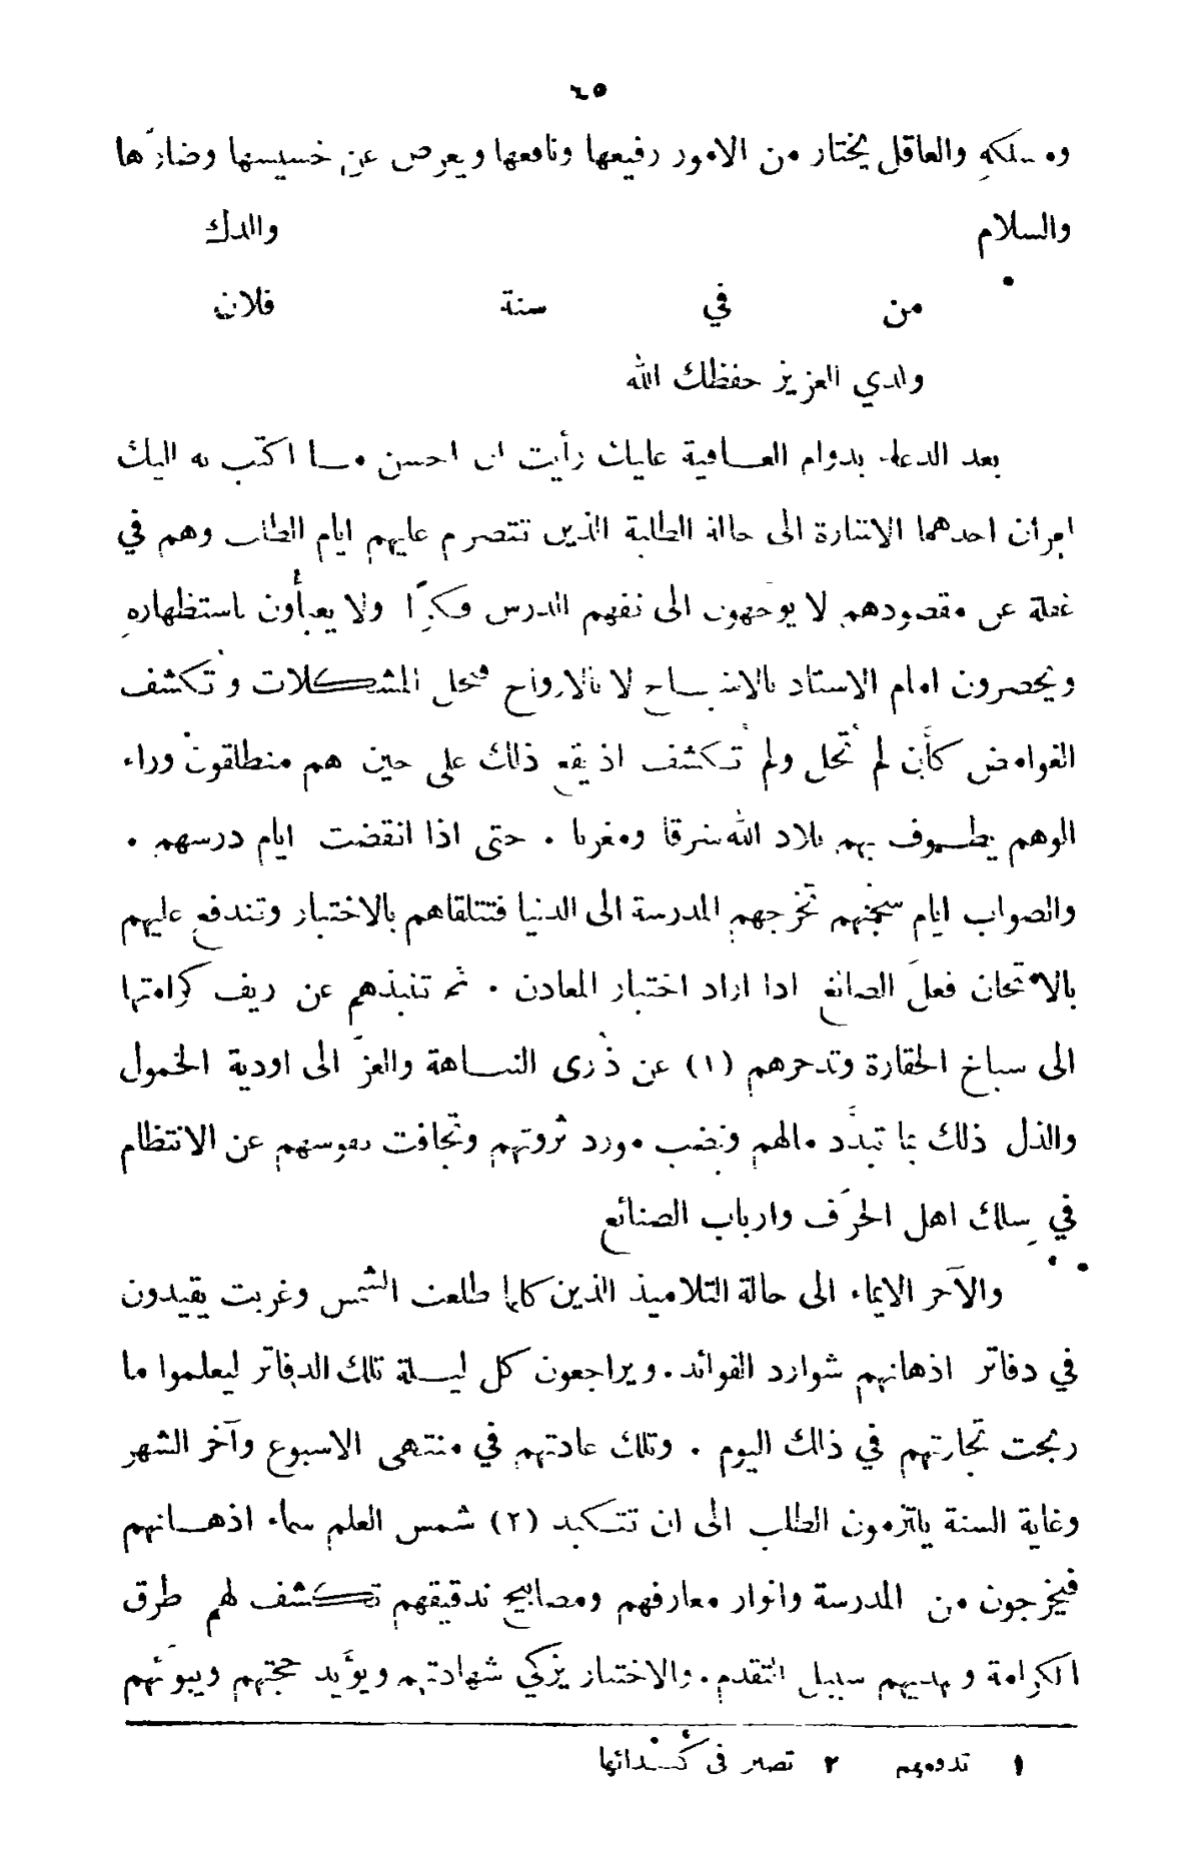 ٤٥
ومسلكهِ والعاقل يختار من الامور رفيعها ونافعها ويعرض عن خسيسها وضارّها
والسلام والدك
من في سنة فلان
ولدي العزيز حفظك الله
بعد الدعاء بدوام العافية عليك رأيت ان احسن ما اكتب به اليك
امران احدهما الاشارة الى حالة الطلبة الذين تتصرم عليهم ايام الطلب وهم في
غفلة عن مقصودهم لا يوجهون الى تفهم الدرس فكرًا ولا يعبأون باستظهارهِ
ويحضرون امام الاستاذ بالاشباح لا بالارواح فتحل المشكلات وتُكشف
الغوامض كأَن لم تُحل ولم تُكشف اذ يقع ذلك على حين هم منطلقون وراء
الوهم يطوف بهم بلاد الله شرقا ومغربا . حتى اذا انقضت ايام درسهم .
والصواب ايام سجنهم تخرجهم المدرسة الى الدنيا فتتلقاهم بالاختبار وتندفع عليهم
بالامتحان فعلَ الصائغ اذا اراد اختبار المعادن . ثم تنبذهم عن ريف كرامتها
الى سباخ الحقارة وتدحرهم (١) عن ذُرى النباهة والعزّ الى اودية الخمول
والذل ذلك بما تبدَّد مالهم ونضب مورد ثروتهم وتجافت نفوسهم عن الانتظام
في سِلك اهل الحِرَف وارباب الصنائع
والآخر الايماء الى حالة التلاميذ الذين كلما طلعت الشمس وغربت يقيدون
في دفاتر اذهانهم شوارد الفوائد . ويراجعون كل ليلة تلك الدفاتر ليعلموا ما
ربحت تجارتهم في ذلك اليوم . وتلك عادتهم في منتهى الاسبوع وآخر الشهر
وغاية السنة يلتزمون الطلب الى ان تتكبد (٢) شمس العلم سماء اذهانهم
فيخرجون من المدرسة وانوار معارفهم ومصابيح تدقيقهم تكشف لهم طرق
الكرامة ويهديهم سبيل التقدم . والاختبار يزكي شهادتهم ويؤَيد حجتهم ويبوّئهم
١ تدفعهم ٢ تصير في كُبْدائها